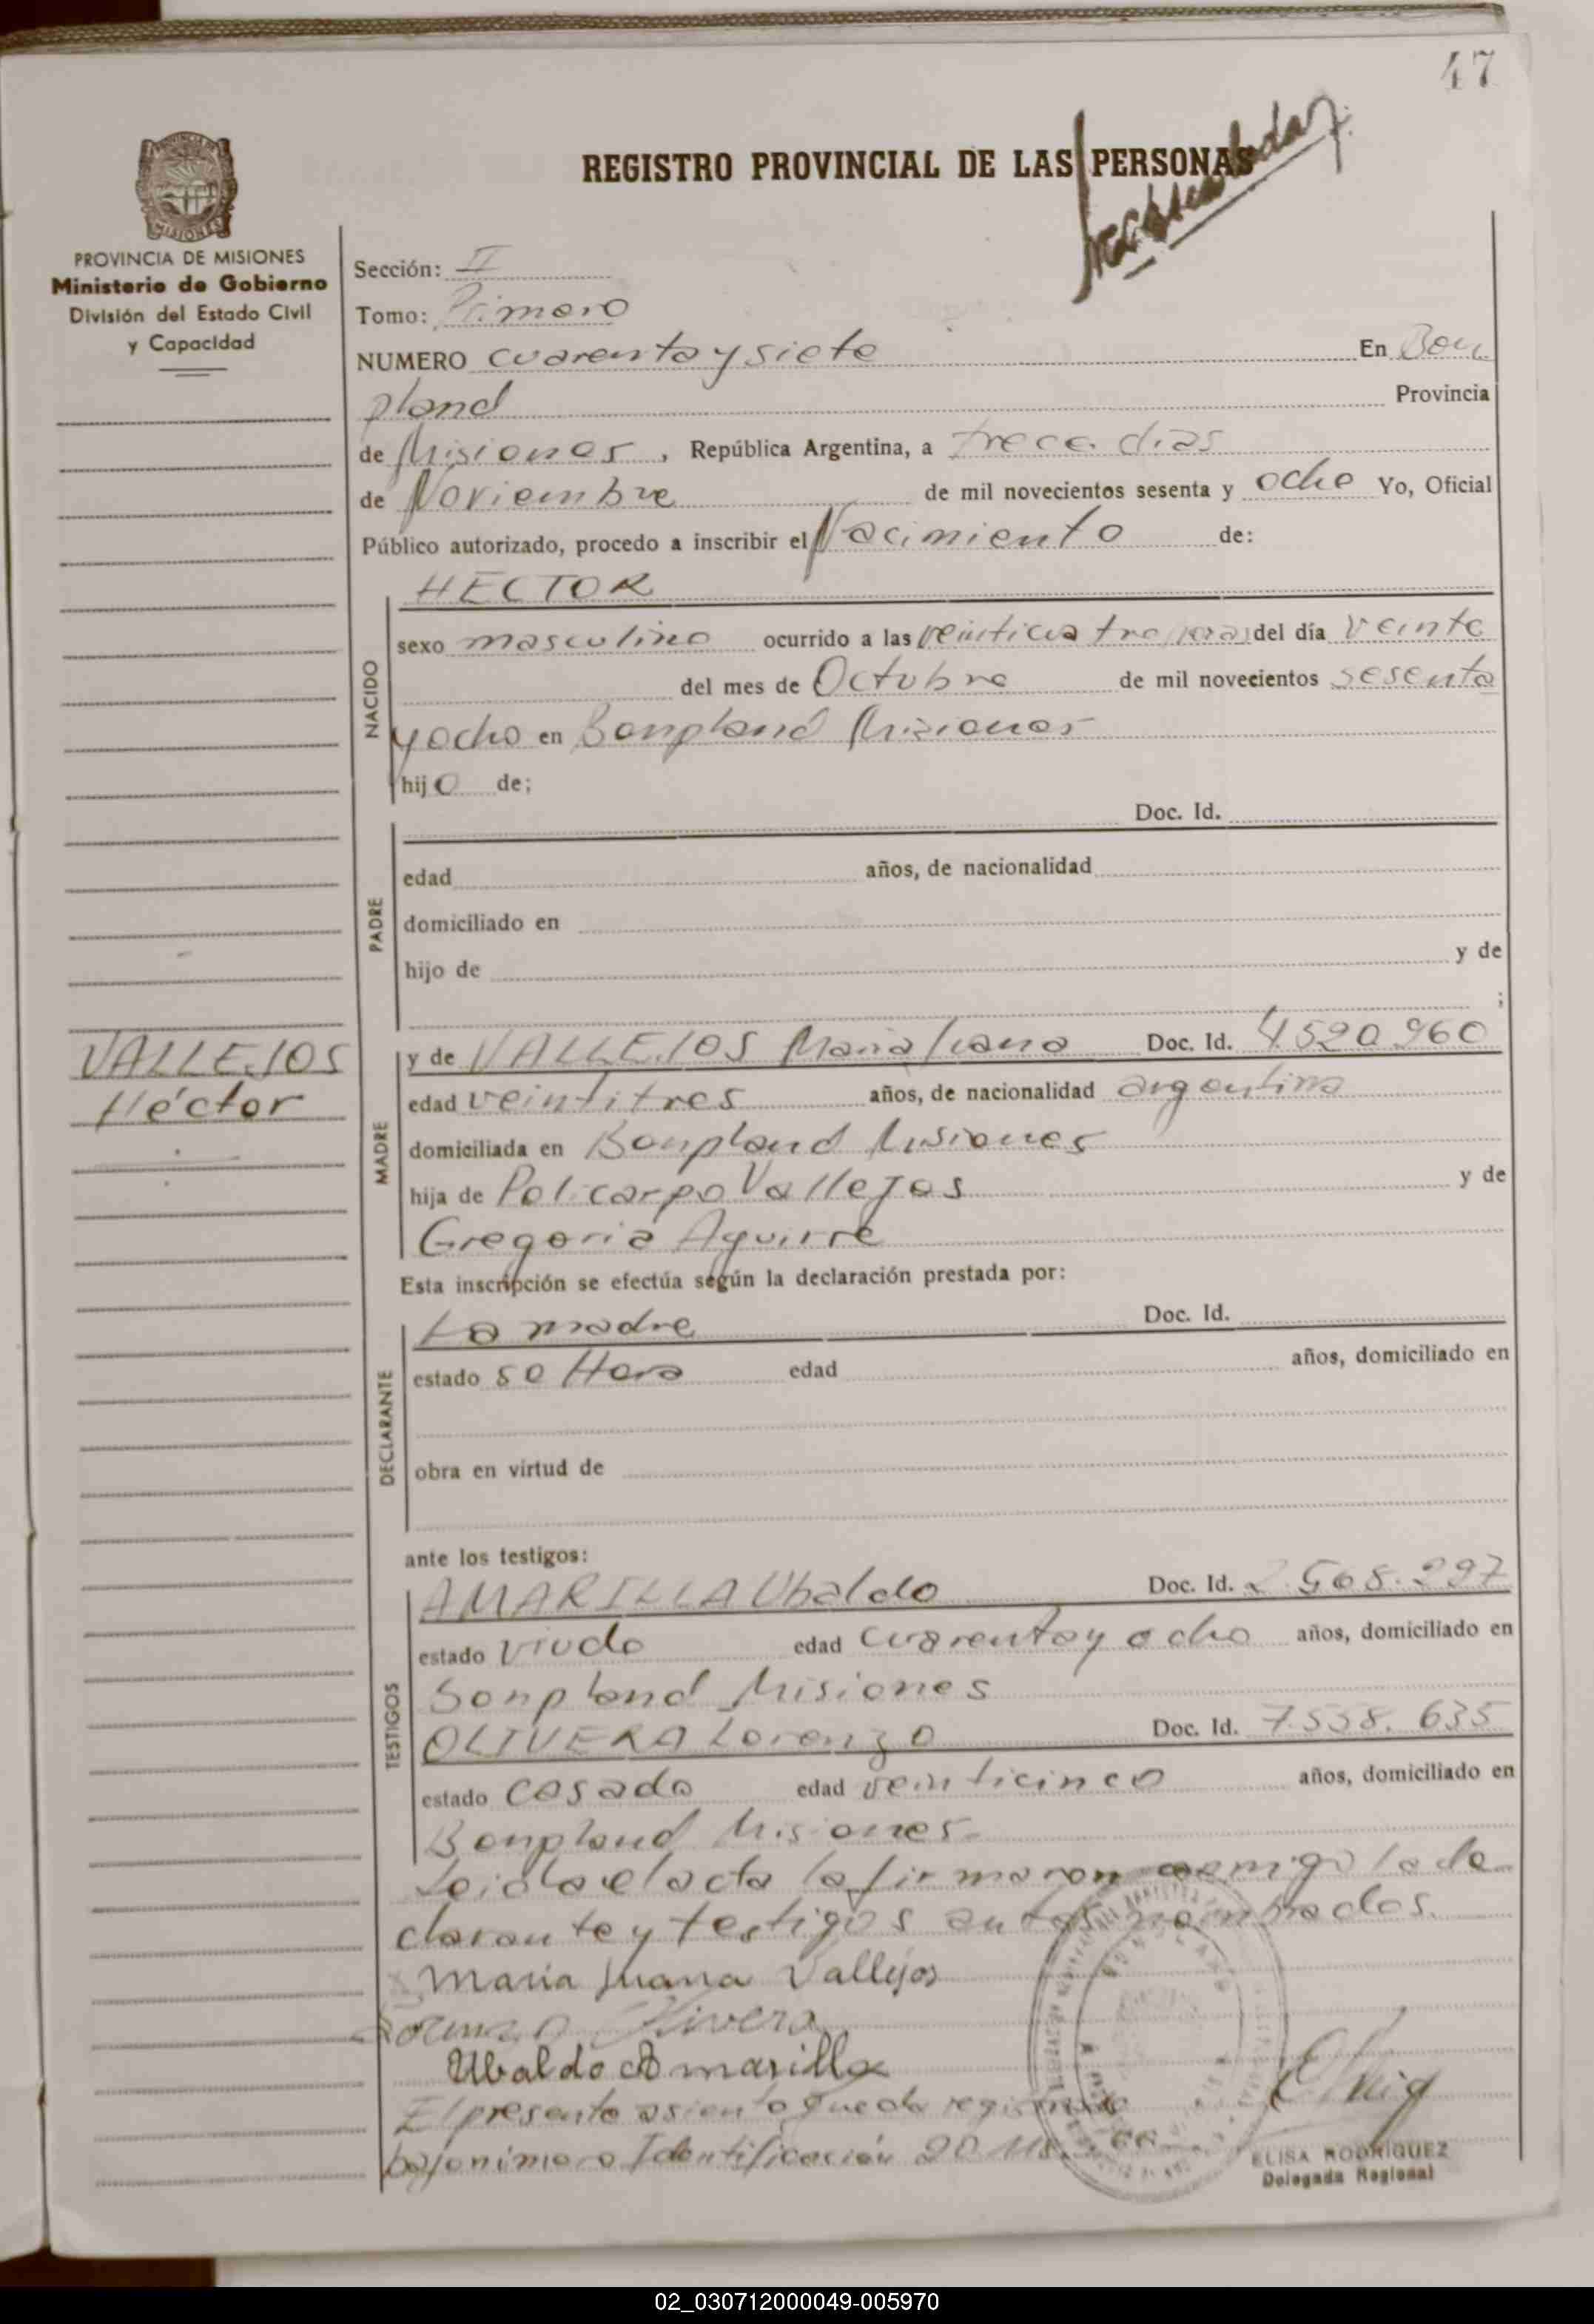 47
REGISTRO PROVINCIAL DE LAS PERSONAS
PROVINCIA DE MISIONES
Ministerio de Gobierno
División del Estado Civil
y Capacidad
Sección: II
Tomo: Primero
NUMERO cuarenta y siete En Bon
pland Provincia
de Misiones, República Argentina, a trece dias
de Noviembre de mil novecientos sesenta y ocho Yo, Oficial
Público autorizado, procedo a inscribir el Nacimiento de:
NACIDO
HECTOR
sexo masculino ocurrido a las del día veinte
del mes de Octubre de mil novecientos sesenta
y ocho en Bonpland Misiones
hijo de;
PADRE
Doc. Id.
edad años, de nacionalidad
domiciliado en
hijo de y de
;
VALLEJOS
Héctor
MADRE
y de VALLEJOS Maria Juana Doc. Id. 4.520.960
edad veintitres años, de nacionalidad argentina
domiciliada en Bonpland Misiones
hija de Policarpo Vallejos y de
Gregoria Aguirre
Esta inscripción se efectúa según la declaración prestada por:
DECLARANTE
La madre Doc. Id.
estado soltera edad años, domiciliado en
obra en virtud de
ante los testigos:
TESTIGOS
AMARILLA Ubaldo Doc. Id. 2.568.297
estado viudo edad cuarenta y ocho años, domiciliado en
Bonpland Misiones
OLIVERA Lorenzo Doc. Id. 7.558.635
estado casado edad veinticinco años, domiciliado en
Bonpland Misiones
Leida el acta la firmaron conmigo la de
clarante y testigos antes nombrados.
Maria Juana Vallejos
Lorenzo Olivera
Ubaldo Amarilla
El presente asiento queda registrado
bajo número Identificación 20
ELISA RODRIGUEZ
Delegada Regional
02_030712000049-005970